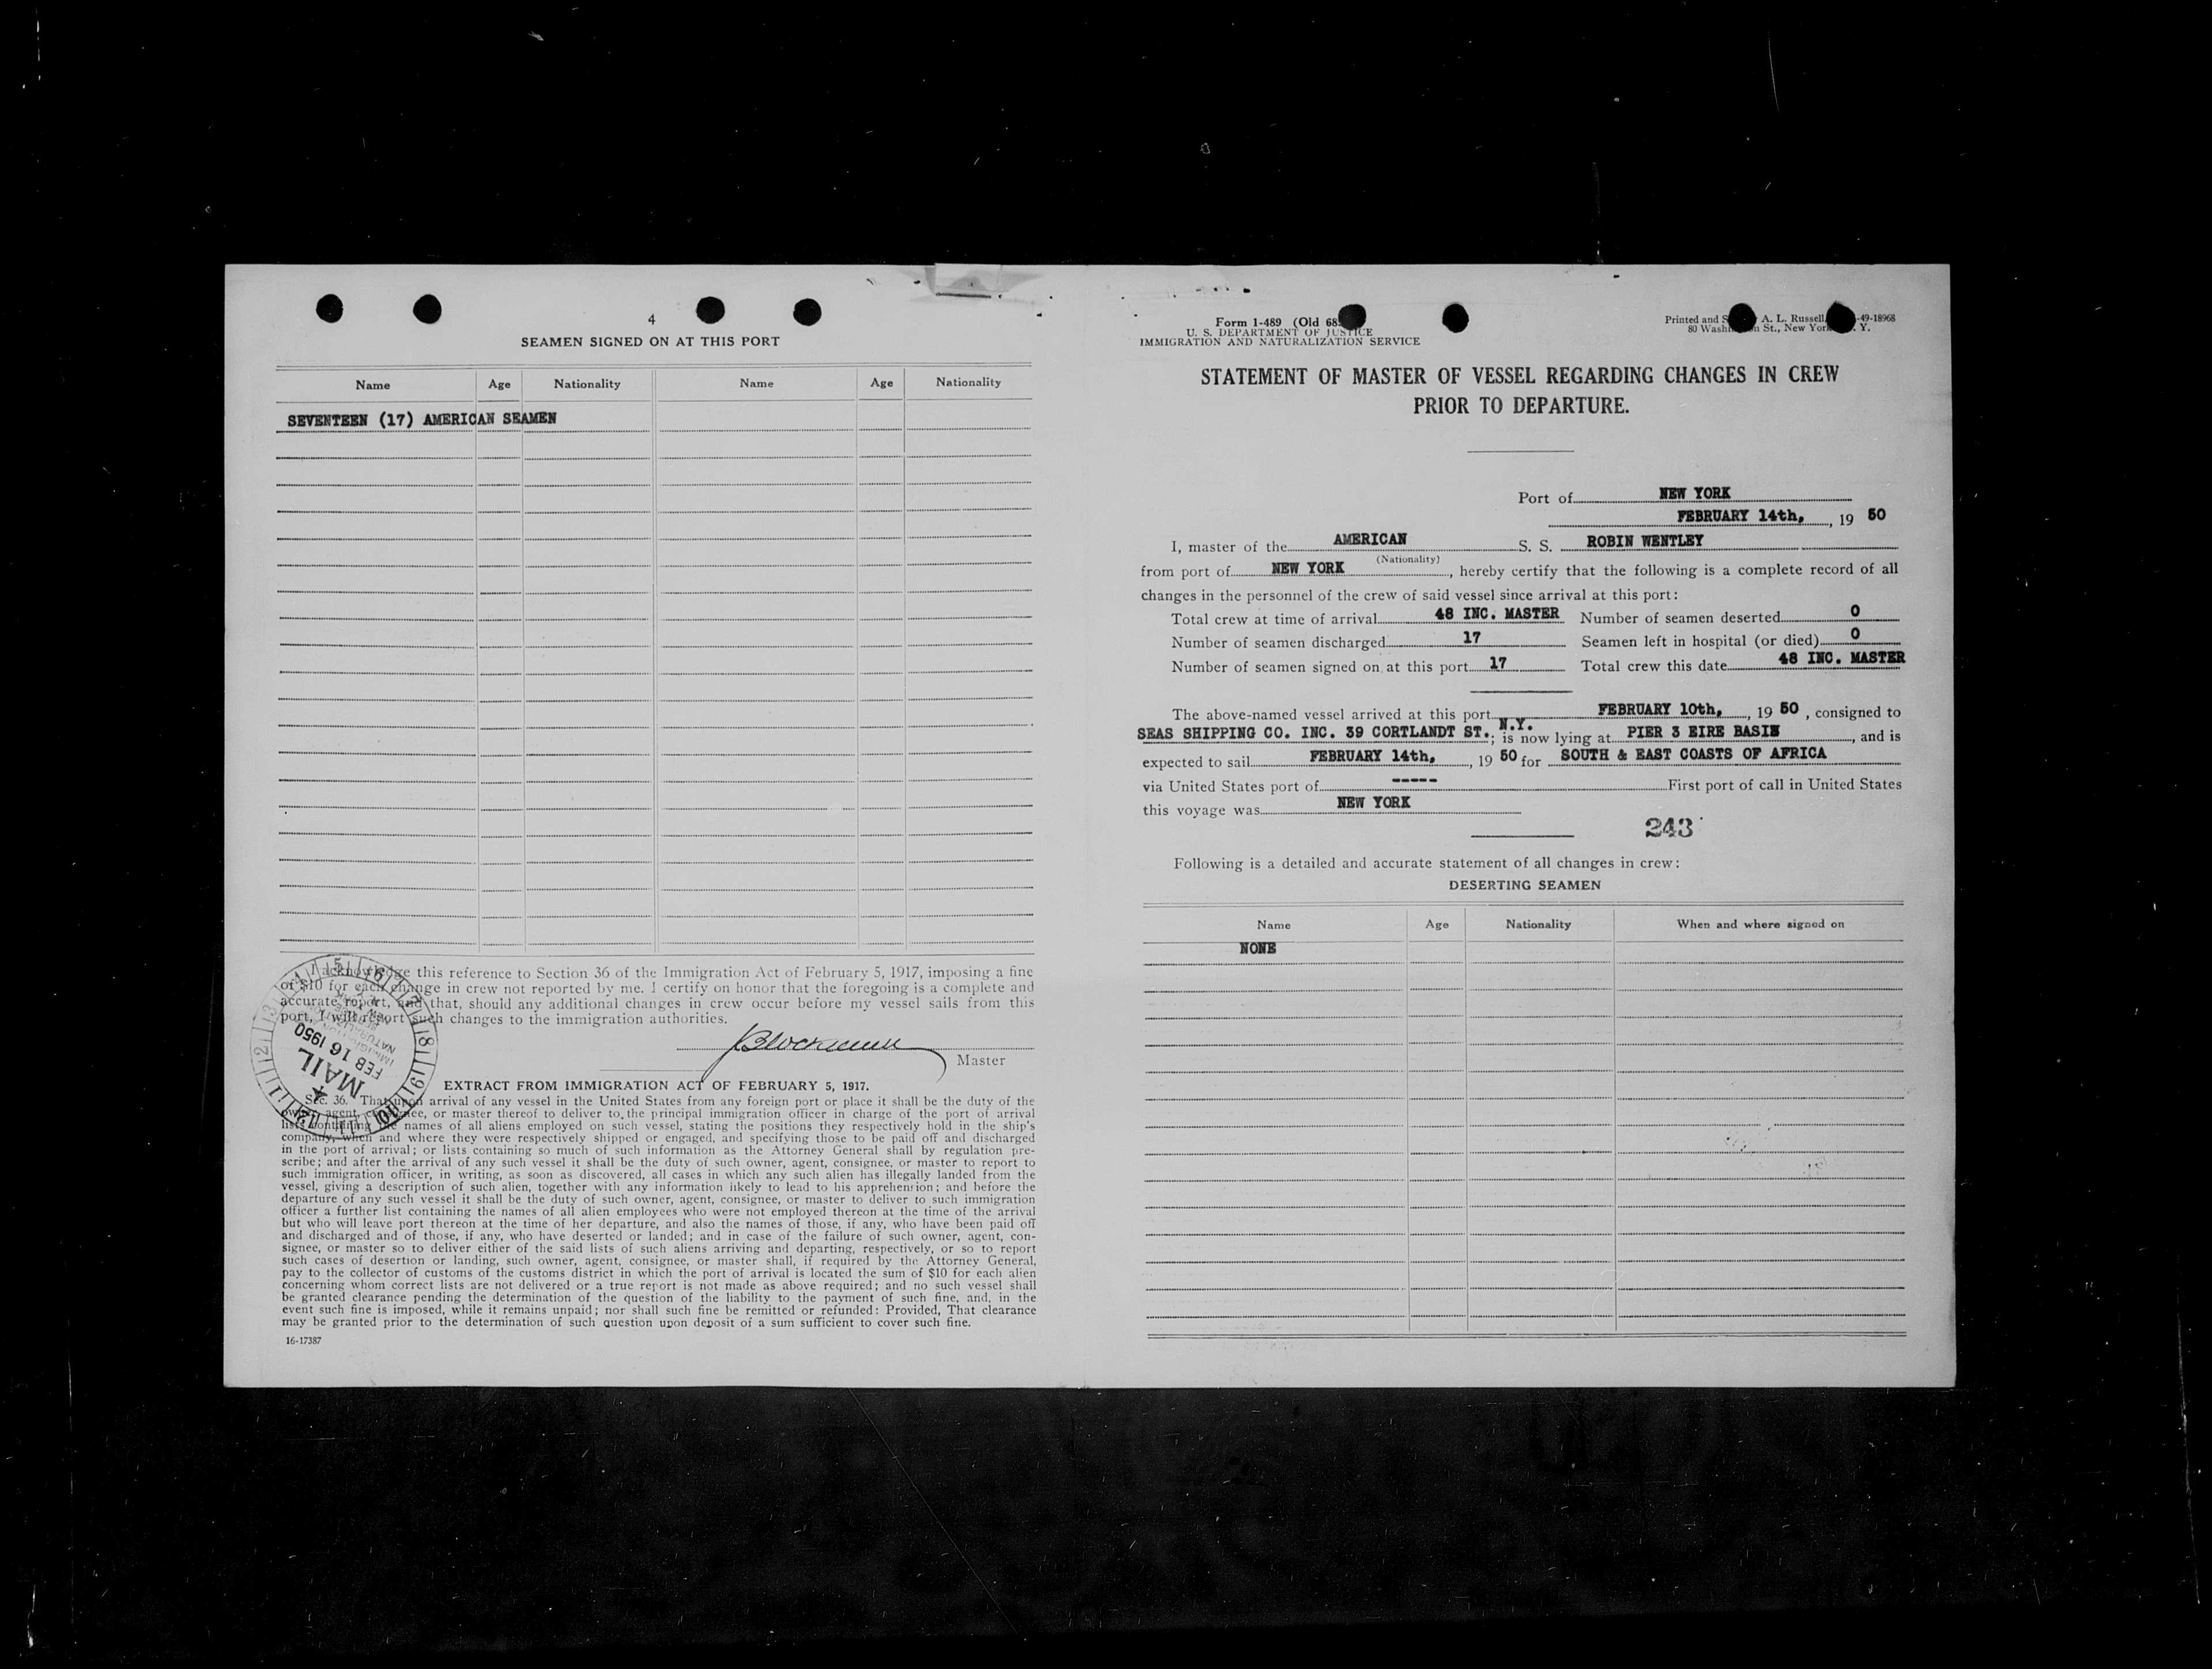 4
SEAMEN SIGNED ON AT THIS PORT
Name Age Nationality Name Age Nationality
SEVENTEEN (17) AMERICAN SEAMEN
I acknowledge this reference to Section 36 of the Immigration Act of February 5, 1917, imposing a fine
of $10 for each change in crew not reported by me. I certify on honor that the foregoing is a complete and
accurate report, and that, should any additional changes in crew occur before my vessel sails from this
port, I will report such changes to the immigration authorities.
Master
MAIL
FEB 16 1950
EXTRACT FROM IMMIGRATION ACT OF FEBRUARY 5, 1917.
Sec. 36. That upon arrival of any vessel in the United States from any foreign port or place it shall be the duty of the
owner, agent, consignee, or master thereof to deliver to the principal immigration officer in charge of the port of arrival
lists containing the names of all aliens employed on such vessel, stating the positions they respectively hold in the ship's
company, when and where they were respectively shipped or engaged, and specifying those to be paid off and discharged
in the port of arrival; or lists containing so much of such information as the Attorney General shall by regulation pre-
scribe; and after the arrival of any such vessel it shall be the duty of such owner, agent, consignee, or master to report to
such immigration officer, in writing, as soon as discovered, all cases in which any such alien has illegally landed from the
vessel, giving a description of such alien, together with any information likely to lead to his apprehension; and before the
departure of any such vessel it shall be the duty of such owner, agent, consignee, or master to deliver to such immigration
officer a further list containing the names of all alien employees who were not employed thereon at the time of the arrival
but who will leave port thereon at the time of her departure, and also the names of those, if any, who have been paid off
and discharged and of those, if any, who have deserted or landed; and in case of the failure of such owner, agent, con-
signee, or master so to deliver either of the said lists of such aliens arriving and departing, respectively, or so to report
such cases of desertion or landing, such owner, agent, consignee, or master shall, if required by the Attorney General,
pay to the collector of customs of the customs district in which the port of arrival is located the sum of $10 for each alien
concerning whom correct lists are not delivered or a true report is not made as above required; and no such vessel shall
be granted clearance pending the determination of the question of the liability to the payment of such fine, and, in the
event such fine is imposed, while it remains unpaid; nor shall such fine be remitted or refunded: Provided, That clearance
may be granted prior to the determination of such question upon deposit of a sum sufficient to cover such fine.
16-17387
Form 1-489 (Old 68
U. S. DEPARTMENT OF JUSTICE
IMMIGRATION AND NATURALIZATION SERVICE
Printed and S A. L. Russell, -49-18968
80 Wash n St., New York . Y.
STATEMENT OF MASTER OF VESSEL REGARDING CHANGES IN CREW
PRIOR TO DEPARTURE.
Port of NEW YORK
FEBRUARY 14th, , 19 50
I, master of the AMERICAN S. S. ROBIN WENTLEY
(Nationality)
from port of NEW YORK , hereby certify that the following is a complete record of all
changes in the personnel of the crew of said vessel since arrival at this port:
Total crew at time of arrival 48 INC. MASTER Number of seamen deserted 0
Number of seamen discharged 17 Seamen left in hospital (or died) 0
Number of seamen signed on at this port 17 Total crew this date 48 INC. MASTER
The above-named vessel arrived at this port FEBRUARY 10th, , 19 50 , consigned to
SEAS SHIPPING CO. INC. 39 CORTLANDT ST., N.Y. ; is now lying at PIER 3 EIRE BASIN , and is
expected to sail FEBRUARY 14th, , 19 50 for SOUTH & EAST COASTS OF AFRICA
via United States port of ----- First port of call in United States
this voyage was NEW YORK
243
Following is a detailed and accurate statement of all changes in crew:
DESERTING SEAMEN
Name Age Nationality When and where signed on
NONE